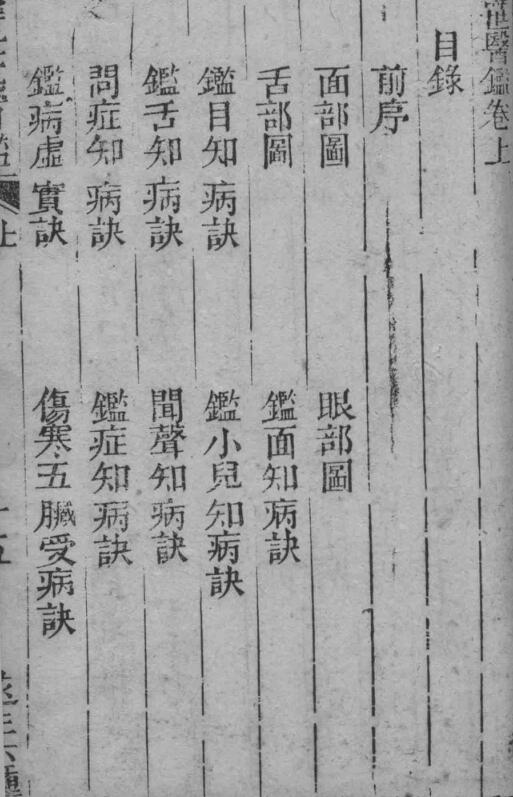 醫鑑卷上
目錄
前序
面部圖
眼部圖
舌部圖
鑑面知病訣
鑑目知病訣
鑑小兒知病訣
鑑舌知病訣
聞聲知病訣
問症知病訣
鑑症知病訣
鑑病虛實訣
傷寒五臟受病訣
上